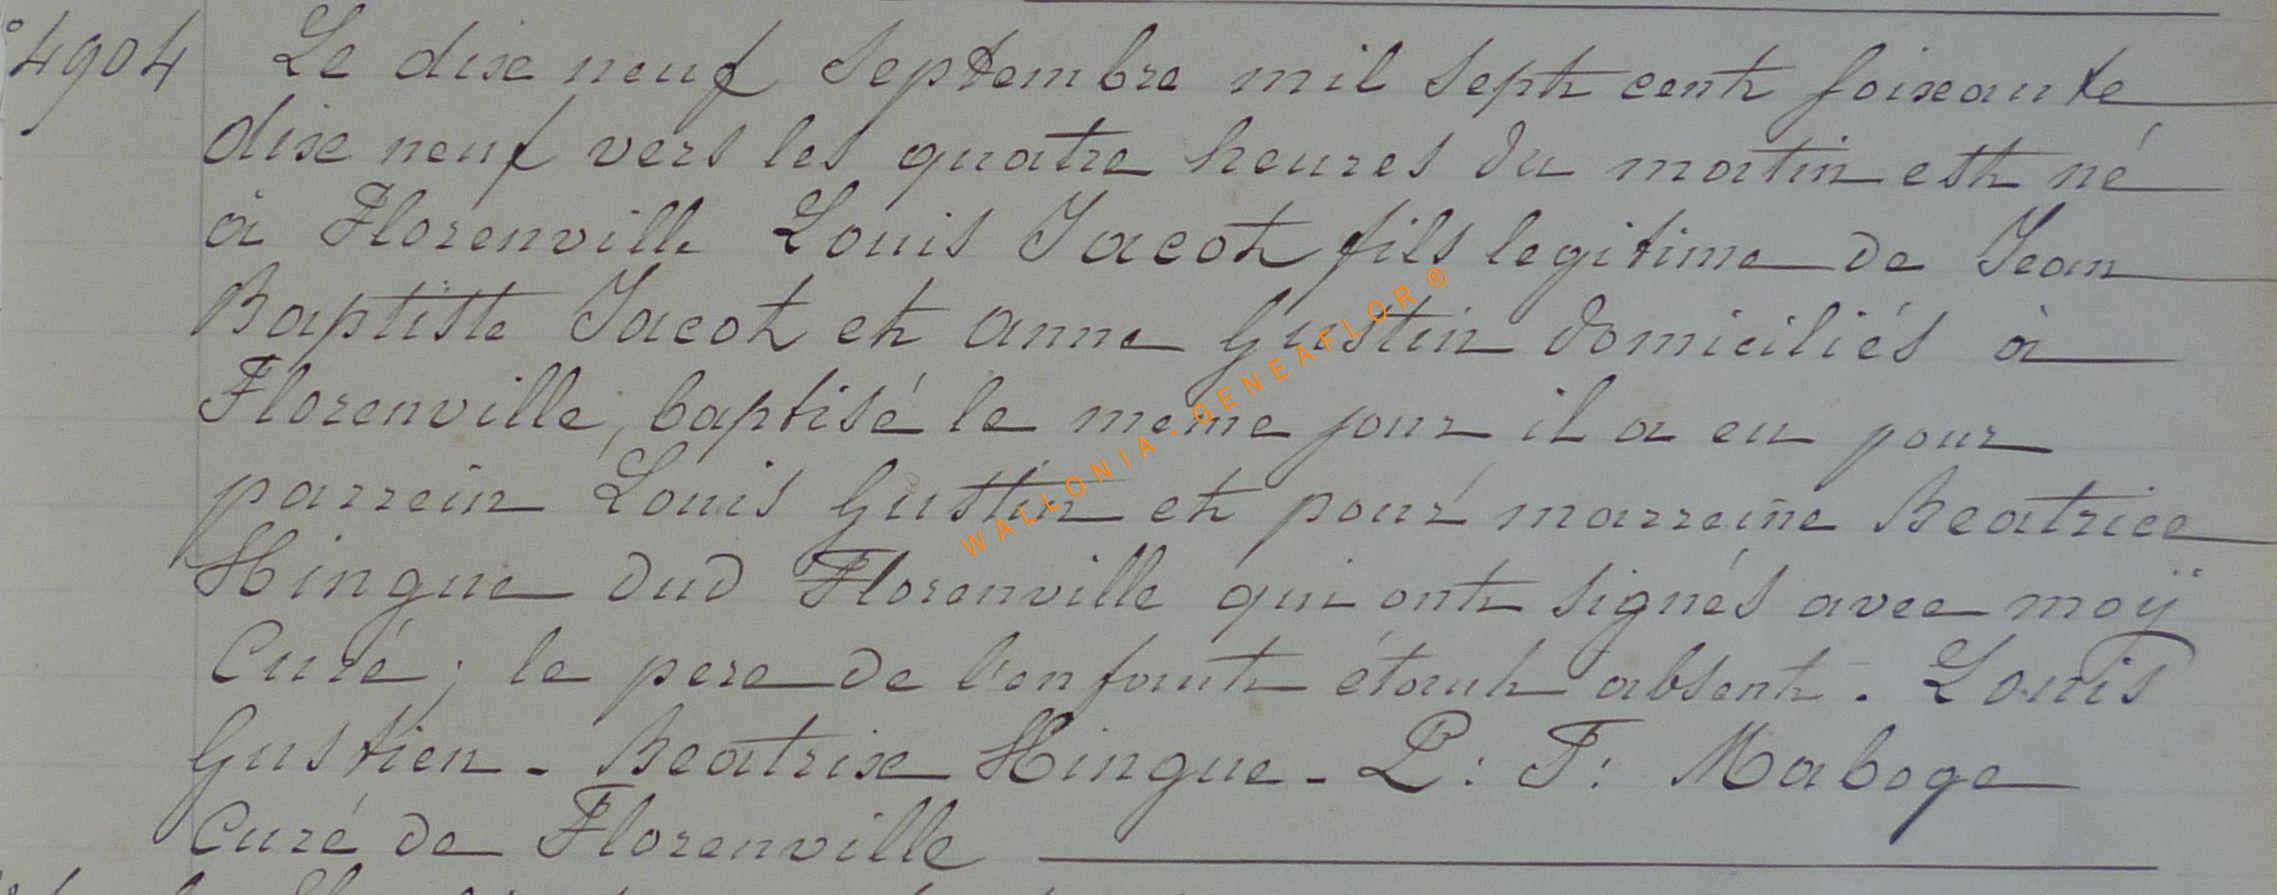 °4904 Le dix neuf Septembre mil Sept cent soixante
dix neuf vers les quatre heures du matin est né
à Florenville Louis Jacot fils legitime de Jean
Baptiste Jacot et anne Gustin domiciliés à
Florenville, baptisé le meme jour il a eu pour
parrein Louis Gustin et pour marreine Beatrice
Hingue dud Florenville qui ont signés avec moÿ
Curé; le pere de l'enfant étant absent. Louis
Gustien - Beatrix Hingue - P: F: Maboge
Curé de Florenville
WALLONIA-GENEAFLOR®